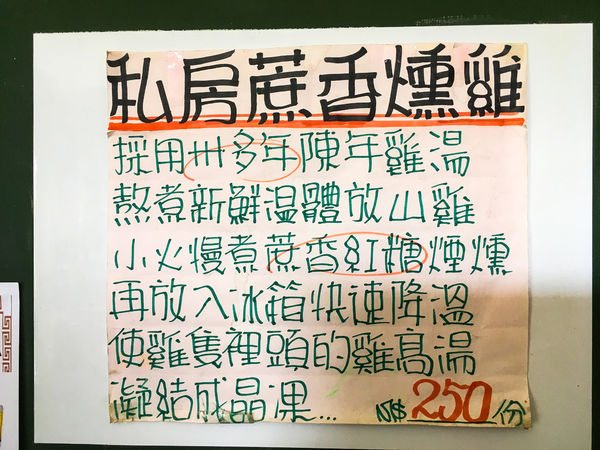 私房蔗香燻雞
採用卅多年陳年雞湯
熬煮新鮮溫體放山雞
小火慢煮蔗香紅糖煙燻
再放入冰箱快速降溫
使雞隻裡頭的雞高湯
凝結成晶凍... N$ 250份